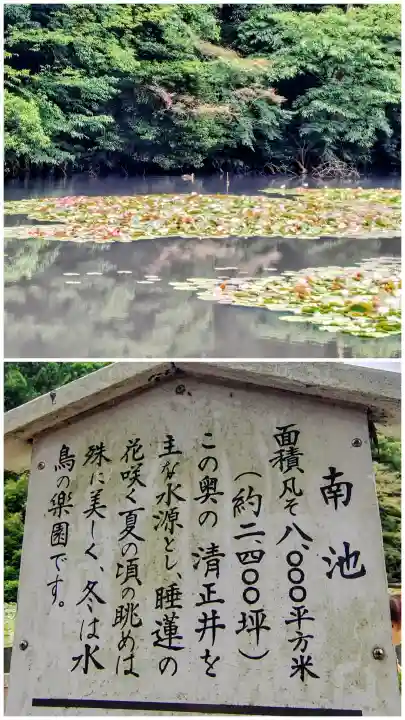 南池
面積凡そ八、〇〇〇平方米
（約二、四〇〇坪）
この奥の清正井を
主な水源とし、睡蓮の
花咲く夏の頃の眺めは
殊に美しく、冬は水
鳥の楽園です。